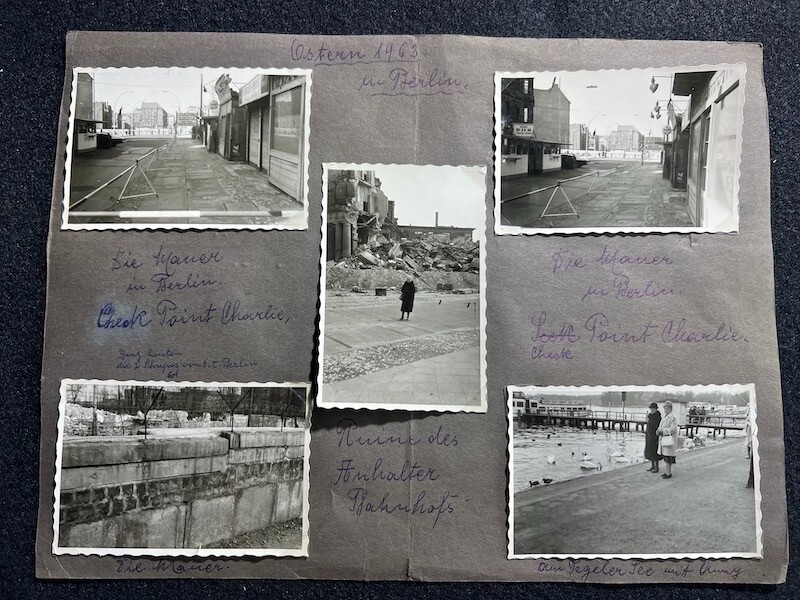 Ostern 1963
in Berlin.
Die Mauer
in Berlin.
Check Point Charlie,
Ganz hinten
Die Mauer
in Berlin
Seek Point Charlie.
Check
Ruine des
Anhalter
Bahnhofs
Die Mauer.
am Tegeler See mit